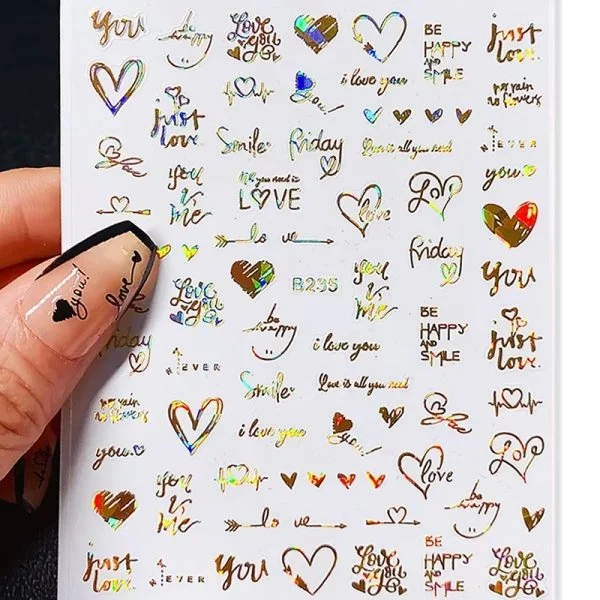 You
be
happy
Love
you
i love you
BE
HAPPY
AND
SMILE
just
love.
no rain
no flowers
just
love
you!
Smile
Friday
love is all you need
NEVER
you
&
me
All you need is
LOVE
love
Love
you.
lo ve
Friday
you
Love
you
B235
you
&
me
BE
HAPPY
AND
SMILE
just
love.
you!
love
be
happy
i love you
Friday
NEVER
Smile
Love is all you need
no rain
no flowers
i love you
you!
you.
love
Love
you
&
me
be
happy
lo ve
just
love.
NEVER
you
Love
you
BE
HAPPY
AND
SMILE
just
love.